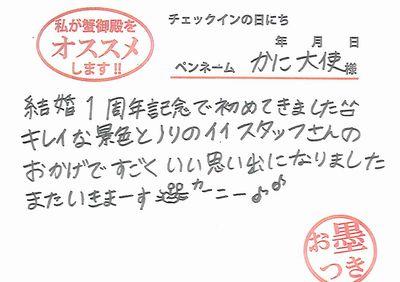 私が蟹御殿を
オススメ
します!!
チェックインの日にち
年 月 日
ペンネーム かに大使様
結婚1周年記念で初めてきました
キレイな景色とノリのイイスタッフさんの
おかげですごくいい思い出になりました
またいきまーす カーニー♪♪
お墨
つき